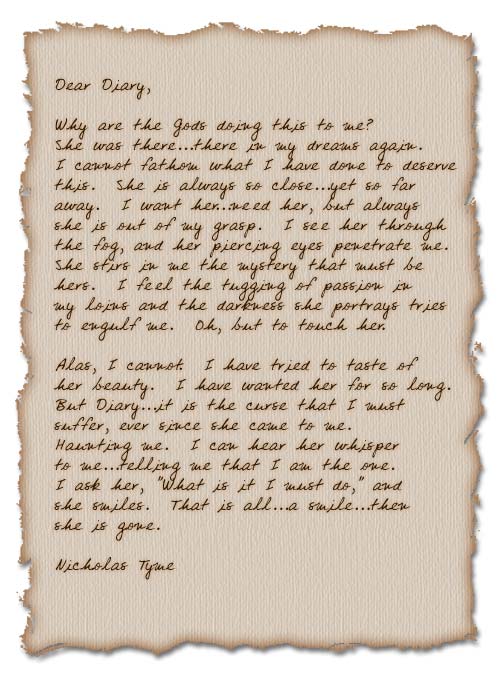 Dear Diary,
Why are the Gods doing this to me?
She was there...there in my dreams again.
I cannot fathom what I have done to deserve
this. She is always so close...yet so far
away. I want her..need her, but always
she is out of my grasp. I see her through
the fog, and her piercing eyes penetrate me.
She stirs in me the mystery that must be
hers. I feel the tugging of passion in
my loins and the darkness she portrays tries
to engulf me. Oh, but to touch her.
Alas, I cannot. I have tried to taste of
her beauty. I have wanted her for so long.
But Diary...it is the curse that I must
suffer, ever since she came to me.
Haunting me. I can hear her whisper
to me...telling me that I am the one.
I ask her, "What is it I must do," and
she smiles. That is all...a smile...then
she is gone.
Nicholas Tyme